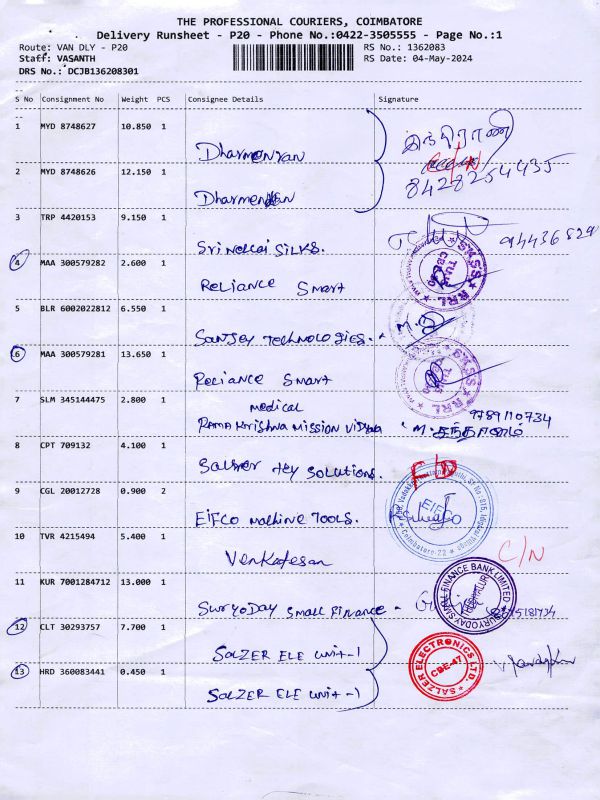 THE PROFESSIONAL COURIERS, COIMBATORE
Delivery Runsheet - P20 - Phone No.:0422-3505555 - Page No.:1
Route: VAN DLY - P20
RS No.: 1362083
Staff: VASANTH
RS Date: 04-May-2024
DRS No.: DCJB136208301
S No Consignment No Weight PCS Consignee Details Signature
1 MYD 8748627 10.850 1
இந்திராணி
C/N
2 MYD 8748626 12.150 1
8428254435
3 TRP 4420153 9.150 1
SILKS.
4 MAA 300579282 2.600 1
Reliance Smart
SMSS * RRL *
5 BLR 6002022812 6.550 1
Sanjey Technologies.
6 MAA 300579281 13.650 1
Reliance Smart
SMSS * RRL *
7 SLM 345144475 2.800 1
medical
Rama Krishna Mission
9789110734
8 CPT 709132 4.100 1
Solutions.
9 CGL 20012728 0.900 2
EIFCO Machine Tools.
EIFCO
Coimbatore-22
10 TVR 4215494 5.400 1
Venkatesan
C/N
11 KUR 7001284712 13.000 1
Suryoday Small Finance
SURYODAY SMALL FINANCE BANK LIMITED
12 CLT 30293757 7.700 1
SALZER ELE UNIT-1
13 HRD 360083441 0.450 1
SALZER ELE UNIT-1
SALZER ELECTRONICS LTD.
CBE-47